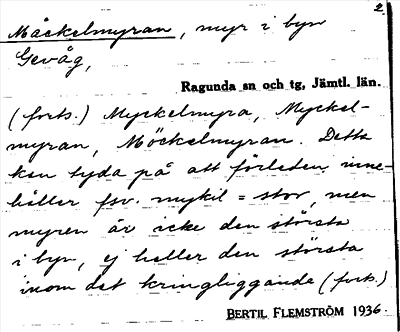 2.
Måckelmyran, myr i byn
Gevåg,
Ragunda sn och tg, Jämtl. län.
(forts.) Myckelmyra, Myckel-
myran, Möckelmyran. Detta
kan tyda på att förleden inne-
håller fsv. mykil = stor, men
myren är icke den största
i byn, ej heller den största
inom det kringliggande (forts.)
BERTIL FLEMSTRÖM 1936.